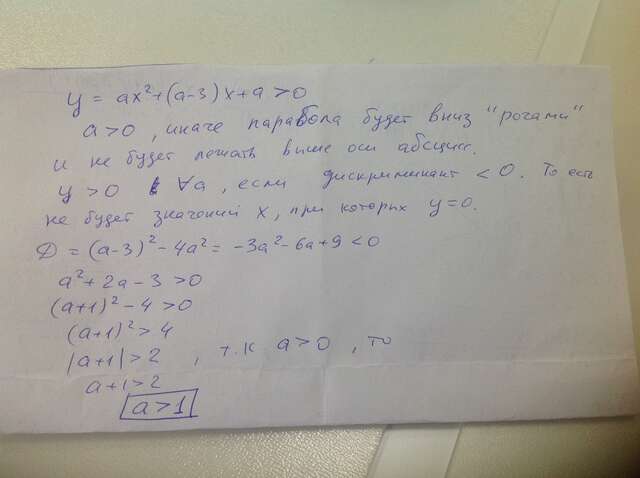 y = ax²+(a-3)x+a>0
a>0, иначе парабола будет вниз "рогами"
и не будет лежать выше оси абсцисс.
y>0 ∀a, если дискриминант <0. То есть
не будет значений x, при которых y=0.
D = (a-3)²-4a² = -3a²-6a+9<0
a²+2a-3>0
(a+1)²-4>0
(a+1)²>4
|a+1|>2, т.к a>0, то
a+1>2
a>1